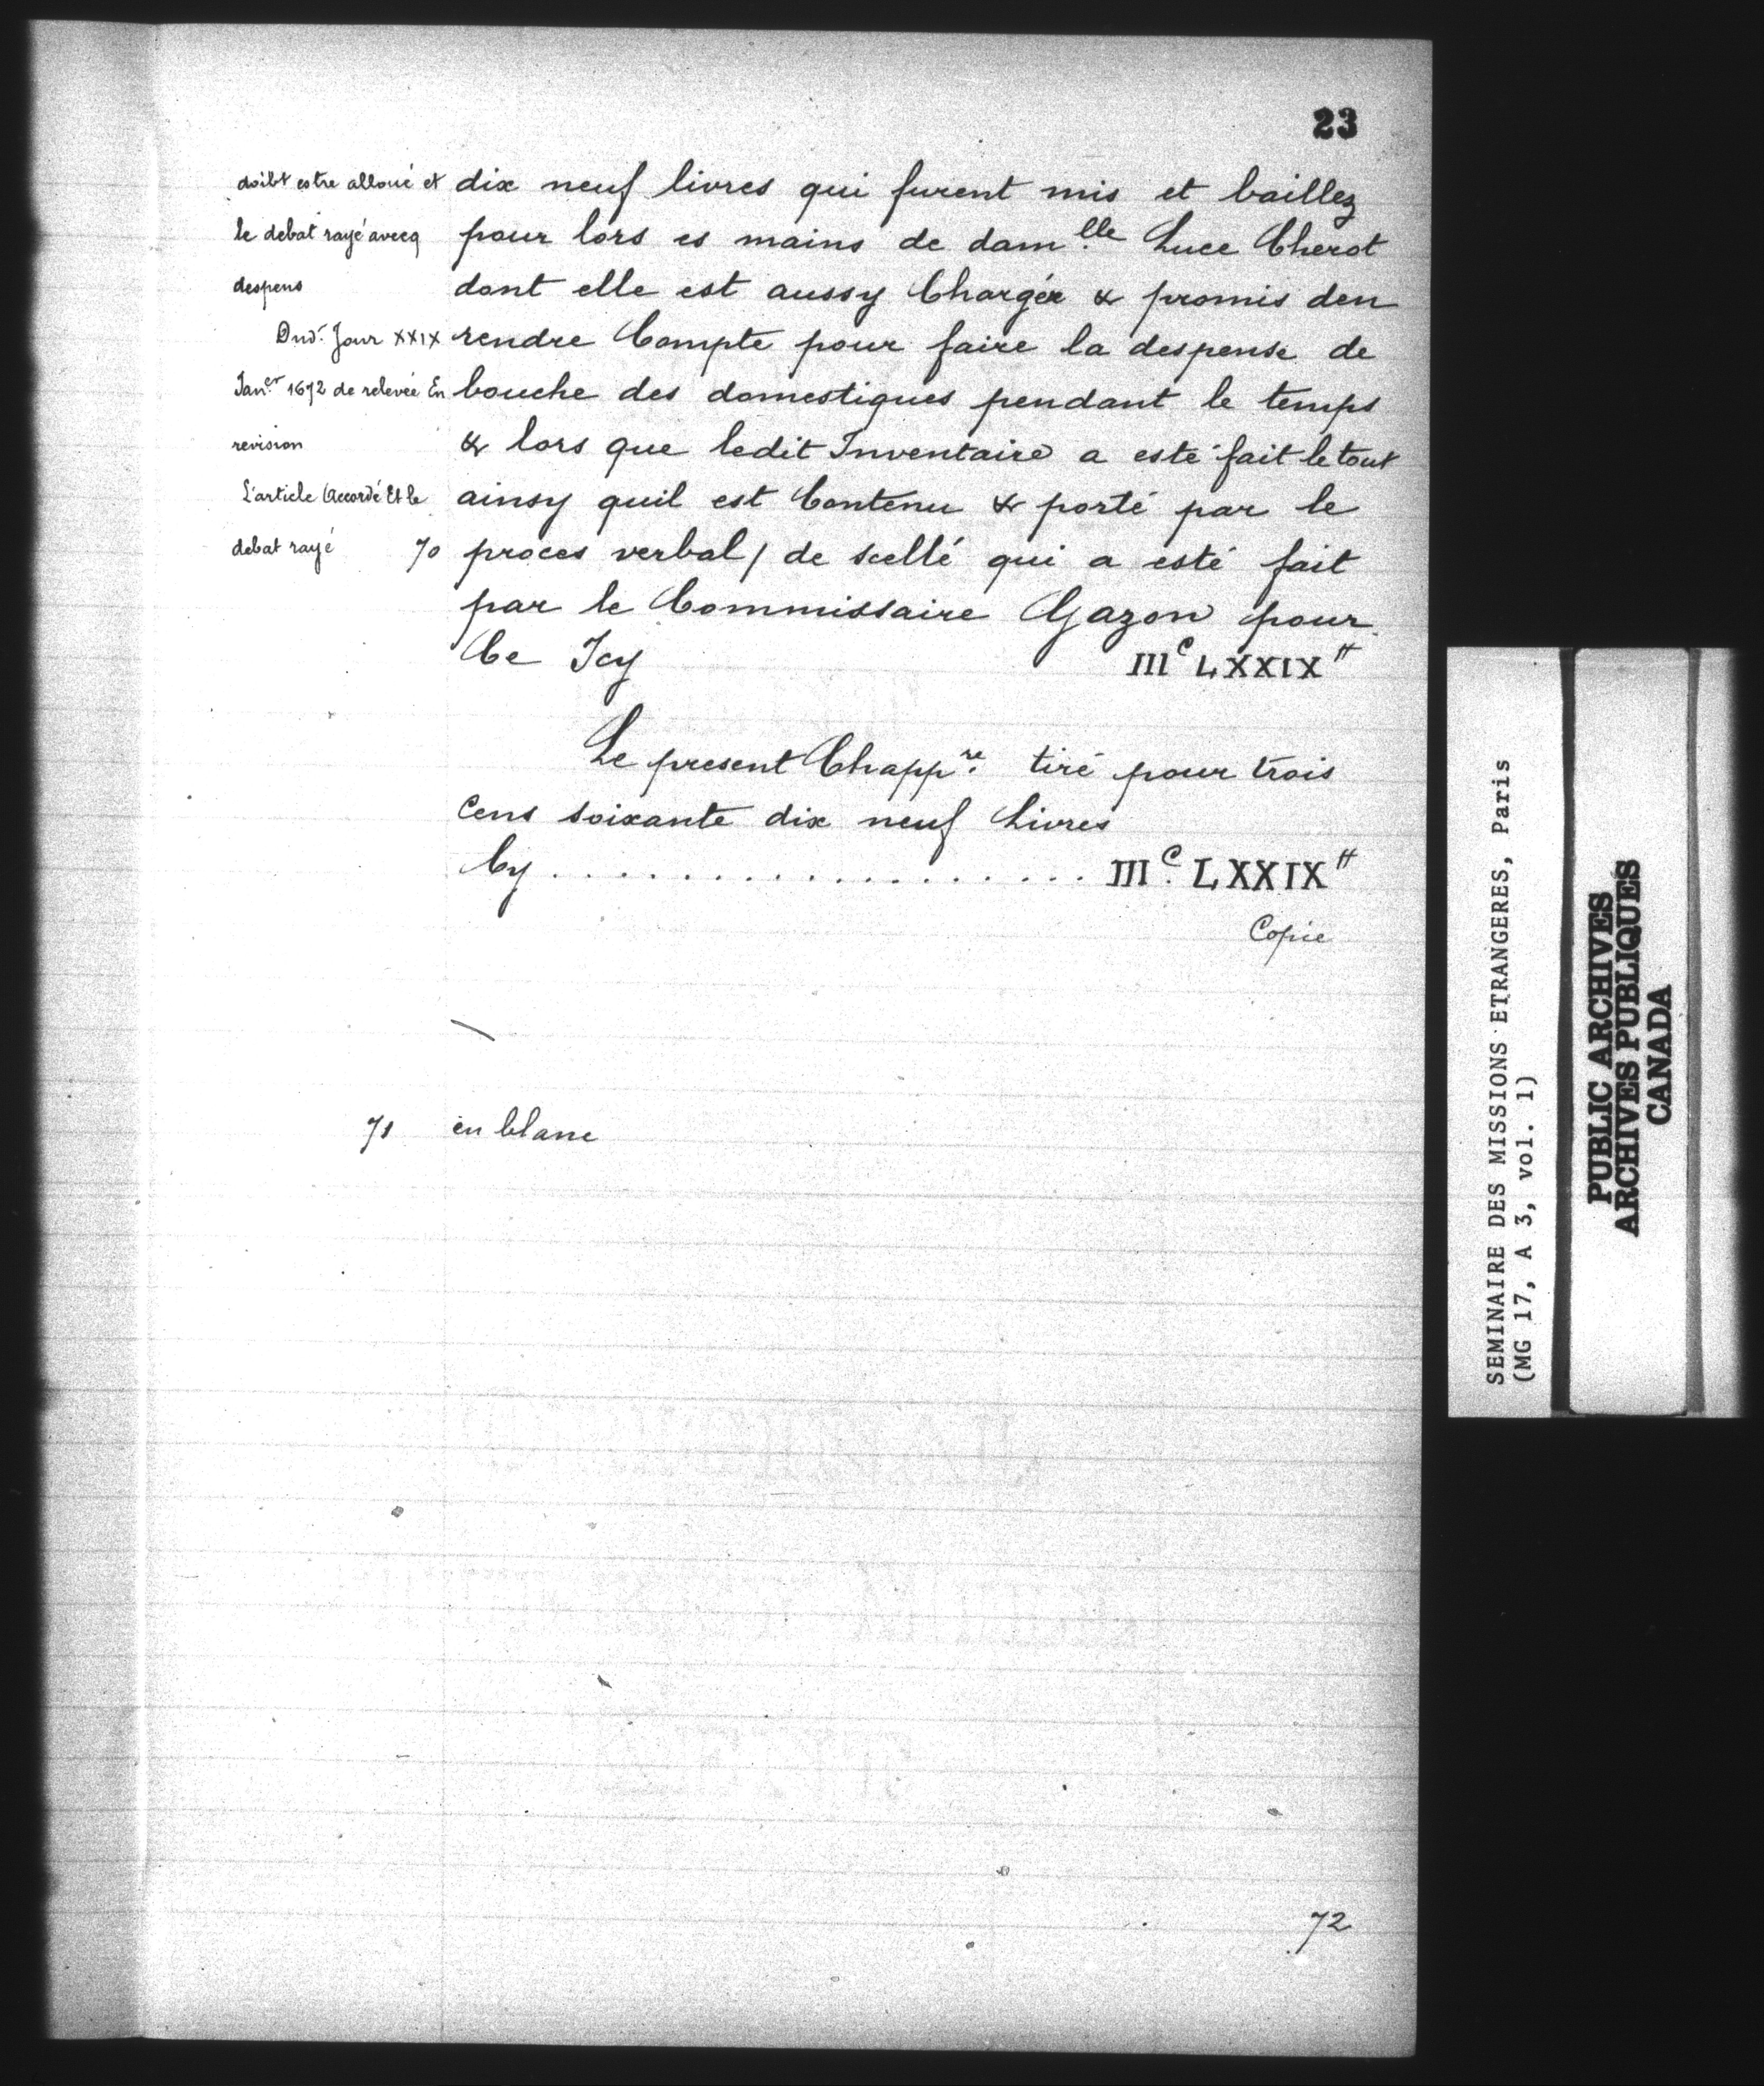 23
doibt estre alloué et
le debat rayé avecq
despens
Dud. Jour XXIX
Jan.er 1672 de relevée En
revision
L'article Accordé Et le
debat rayé
70
dix neuf livres qui furent mis et baillez
pour lors es mains de dam.lle Luce Cherot
dont elle est aussy Chargée & promis den
rendre Compte pour faire la despense de
bouche des domestiques pendant le temps
& lors que ledit Inventaire a esté fait le tout
ainsy quil est Contenu & porté par le
proces verbal / de scellé qui a esté fait
par le Commissaire Gazon pour
Ce Icy IIIc LXXIX tt
Le present Chapp.re tiré pour trois
Cens soixante dix neuf Livres
Cy .................... IIIc. LXXIX tt
Copie
71 en blanc
72
SEMINAIRE DES MISSIONS ETRANGERES, Paris
(MG 17, A 3, vol. 1)
PUBLIC ARCHIVES
ARCHIVES PUBLIQUES
CANADA